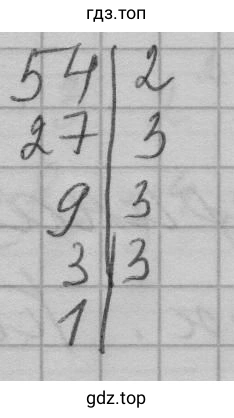 гдз.топ
54 | 2
27 | 3
9 | 3
3 | 3
1 |
gdz.top